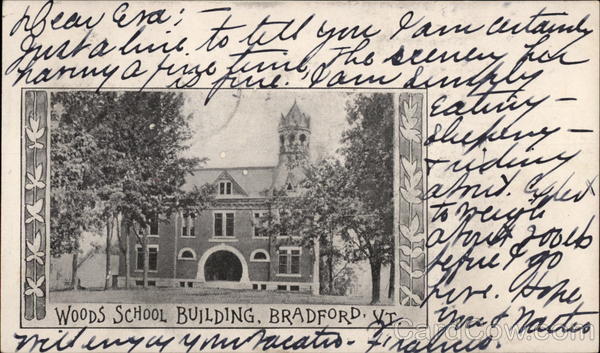 Dear Eva:-
Just a line to tell you I am certainly
having a fine time. The scenery her
is fine. I am simply
eating -
sleeping -
& riding
about. Expect
to weigh
about 200 lb
before I go
here. Hope
you & Mattie
will enjoy your vacation. Frances.
WOODS SCHOOL BUILDING, BRADFORD, VT.
CardCow.com